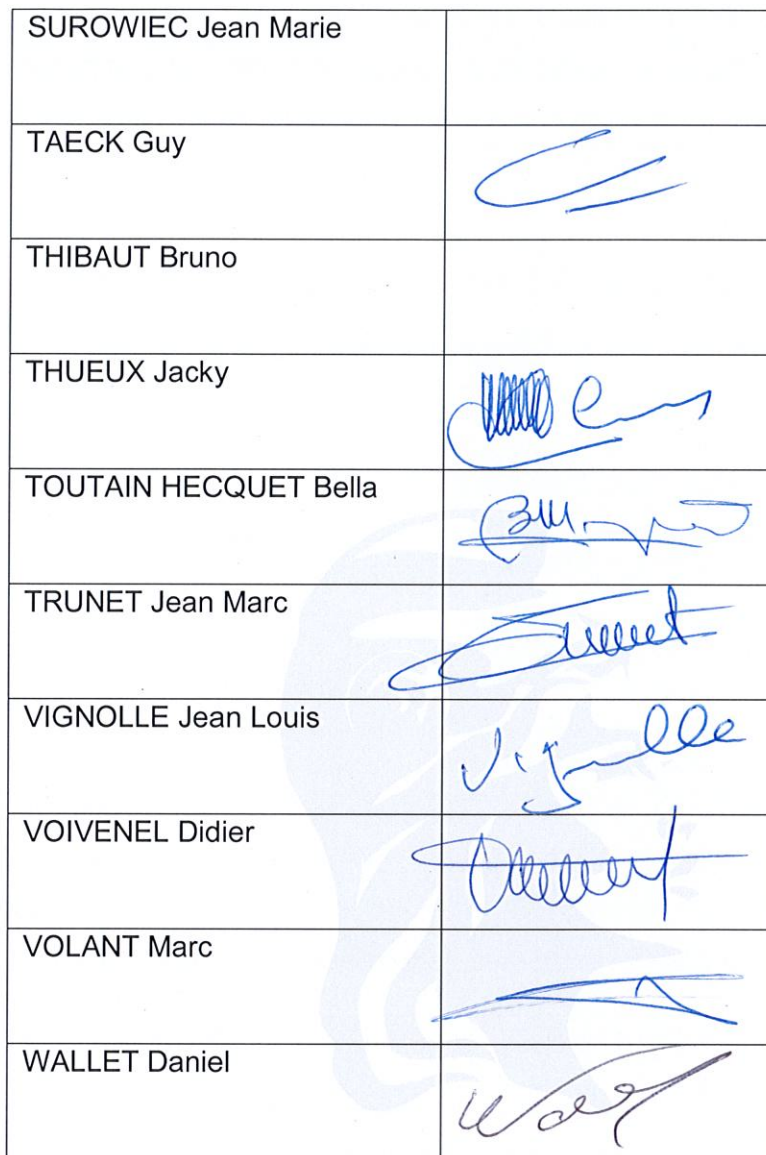 SUROWIEC Jean Marie
TAECK Guy
THIBAUT Bruno
THUEUX Jacky
TOUTAIN HECQUET Bella
TRUNET Jean Marc
VIGNOLLE Jean Louis
Vignolle
VOIVENEL Didier
VOLANT Marc
WALLET Daniel